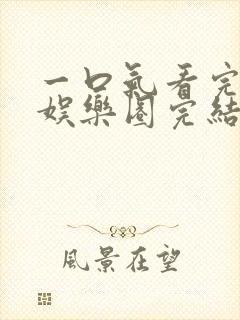 一口氣看完
娛樂圈完結
風景在望